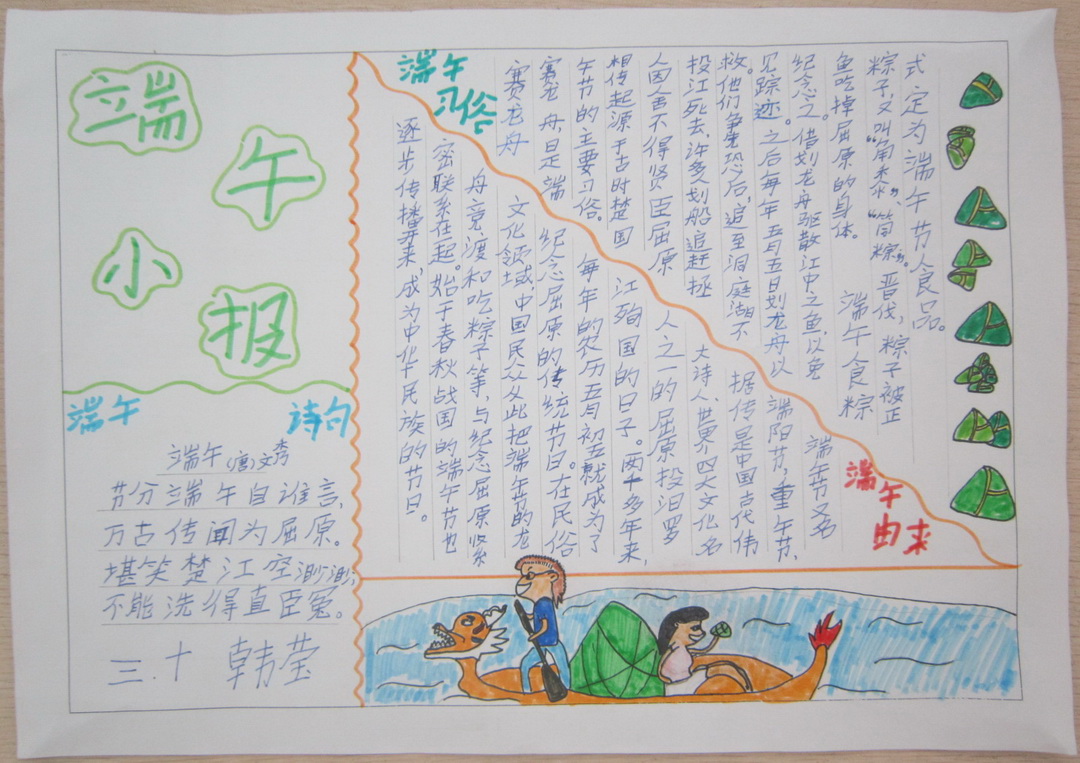 端午
小报
端午 诗句
端午 (唐)文秀
节分端午自谁言,
万古传闻为屈原。
堪笑楚江空渺渺,
不能洗得直臣冤。
三.十 韩莹
端午习俗
赛龙舟
赛龙舟,是端
午节的主要习俗。
相传起源于古时楚国
人因舍不得贤臣屈原
投江死去,许多人划船追赶拯
救。他们争先恐后,追至洞庭湖不
见踪迹。之后每年五月五日划龙舟以
纪念之。借划龙舟驱散江中之鱼,以免
鱼吃掉屈原的身体。
端午食粽
粽子,又叫“角黍”、“筒粽”。晋代,粽子被正
式定为端午节食品。
端午由来
端午节又名
端阳节,重午节,
据传是中国古代伟
大诗人、世界四大文化名
人之一的屈原投汨罗
江殉国的日子。两千多年来,
每年的农历五月初五就成为了
纪念屈原的传统节日。在民俗
文化领域,中国民众从此把端午节的龙
舟竞渡和吃粽子等,与纪念屈原紧
密联系在起。始于春秋战国的端午节也
逐步传播开来,成为中华民族的节日。